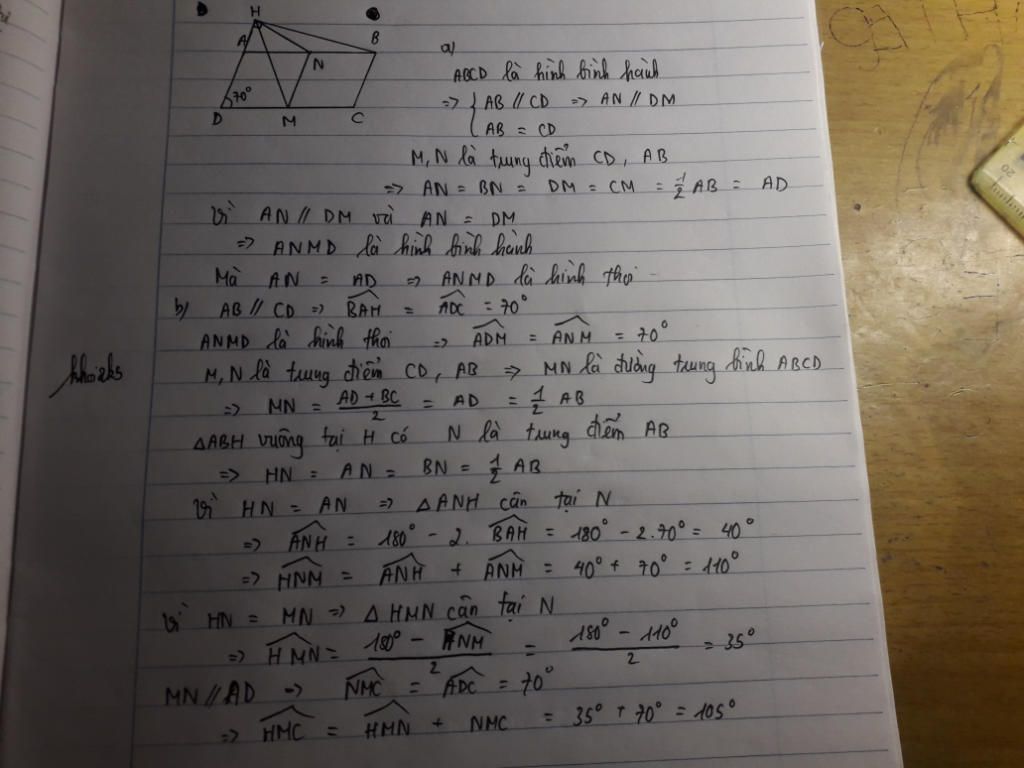 H
A
B
N
70°
D
M
C
a)
ABCD là hình bình hành
=> { AB // CD => AN // DM
AB = CD
M, N là trung điểm CD, AB
=> AN = BN = DM = CM = 1/2 AB = AD
Vì AN // DM và AN = DM
=> ANMD là hình bình hành
Mà AN = AD => ANMD là hình thoi
b) AB // CD => \widehat{BAH} = \widehat{ADC} = 70°
ANMD là hình thoi => \widehat{ADM} = \widehat{ANM} = 70°
M, N là trung điểm CD, AB => MN là đường trung bình ABCD
=> MN = (AD + BC)/2 = AD = 1/2 AB
△ABH vuông tại H có N là trung điểm AB
=> HN = AN = BN = 1/2 AB
Vì HN = AN => △ANH cân tại N
=> \widehat{ANH} = 180° - 2. \widehat{BAH} = 180° - 2.70° = 40°
=> \widehat{HNM} = \widehat{ANH} + \widehat{ANM} = 40° + 70° = 110°
Vì HN = MN => △HMN cân tại N
=> \widehat{HMN} = (180° - \widehat{HNM})/2 = (180° - 110°)/2 = 35°
MN // AD => \widehat{NMC} = \widehat{ADC} = 70°
=> \widehat{HMC} = \widehat{HMN} + NMC = 35° + 70° = 105°
20